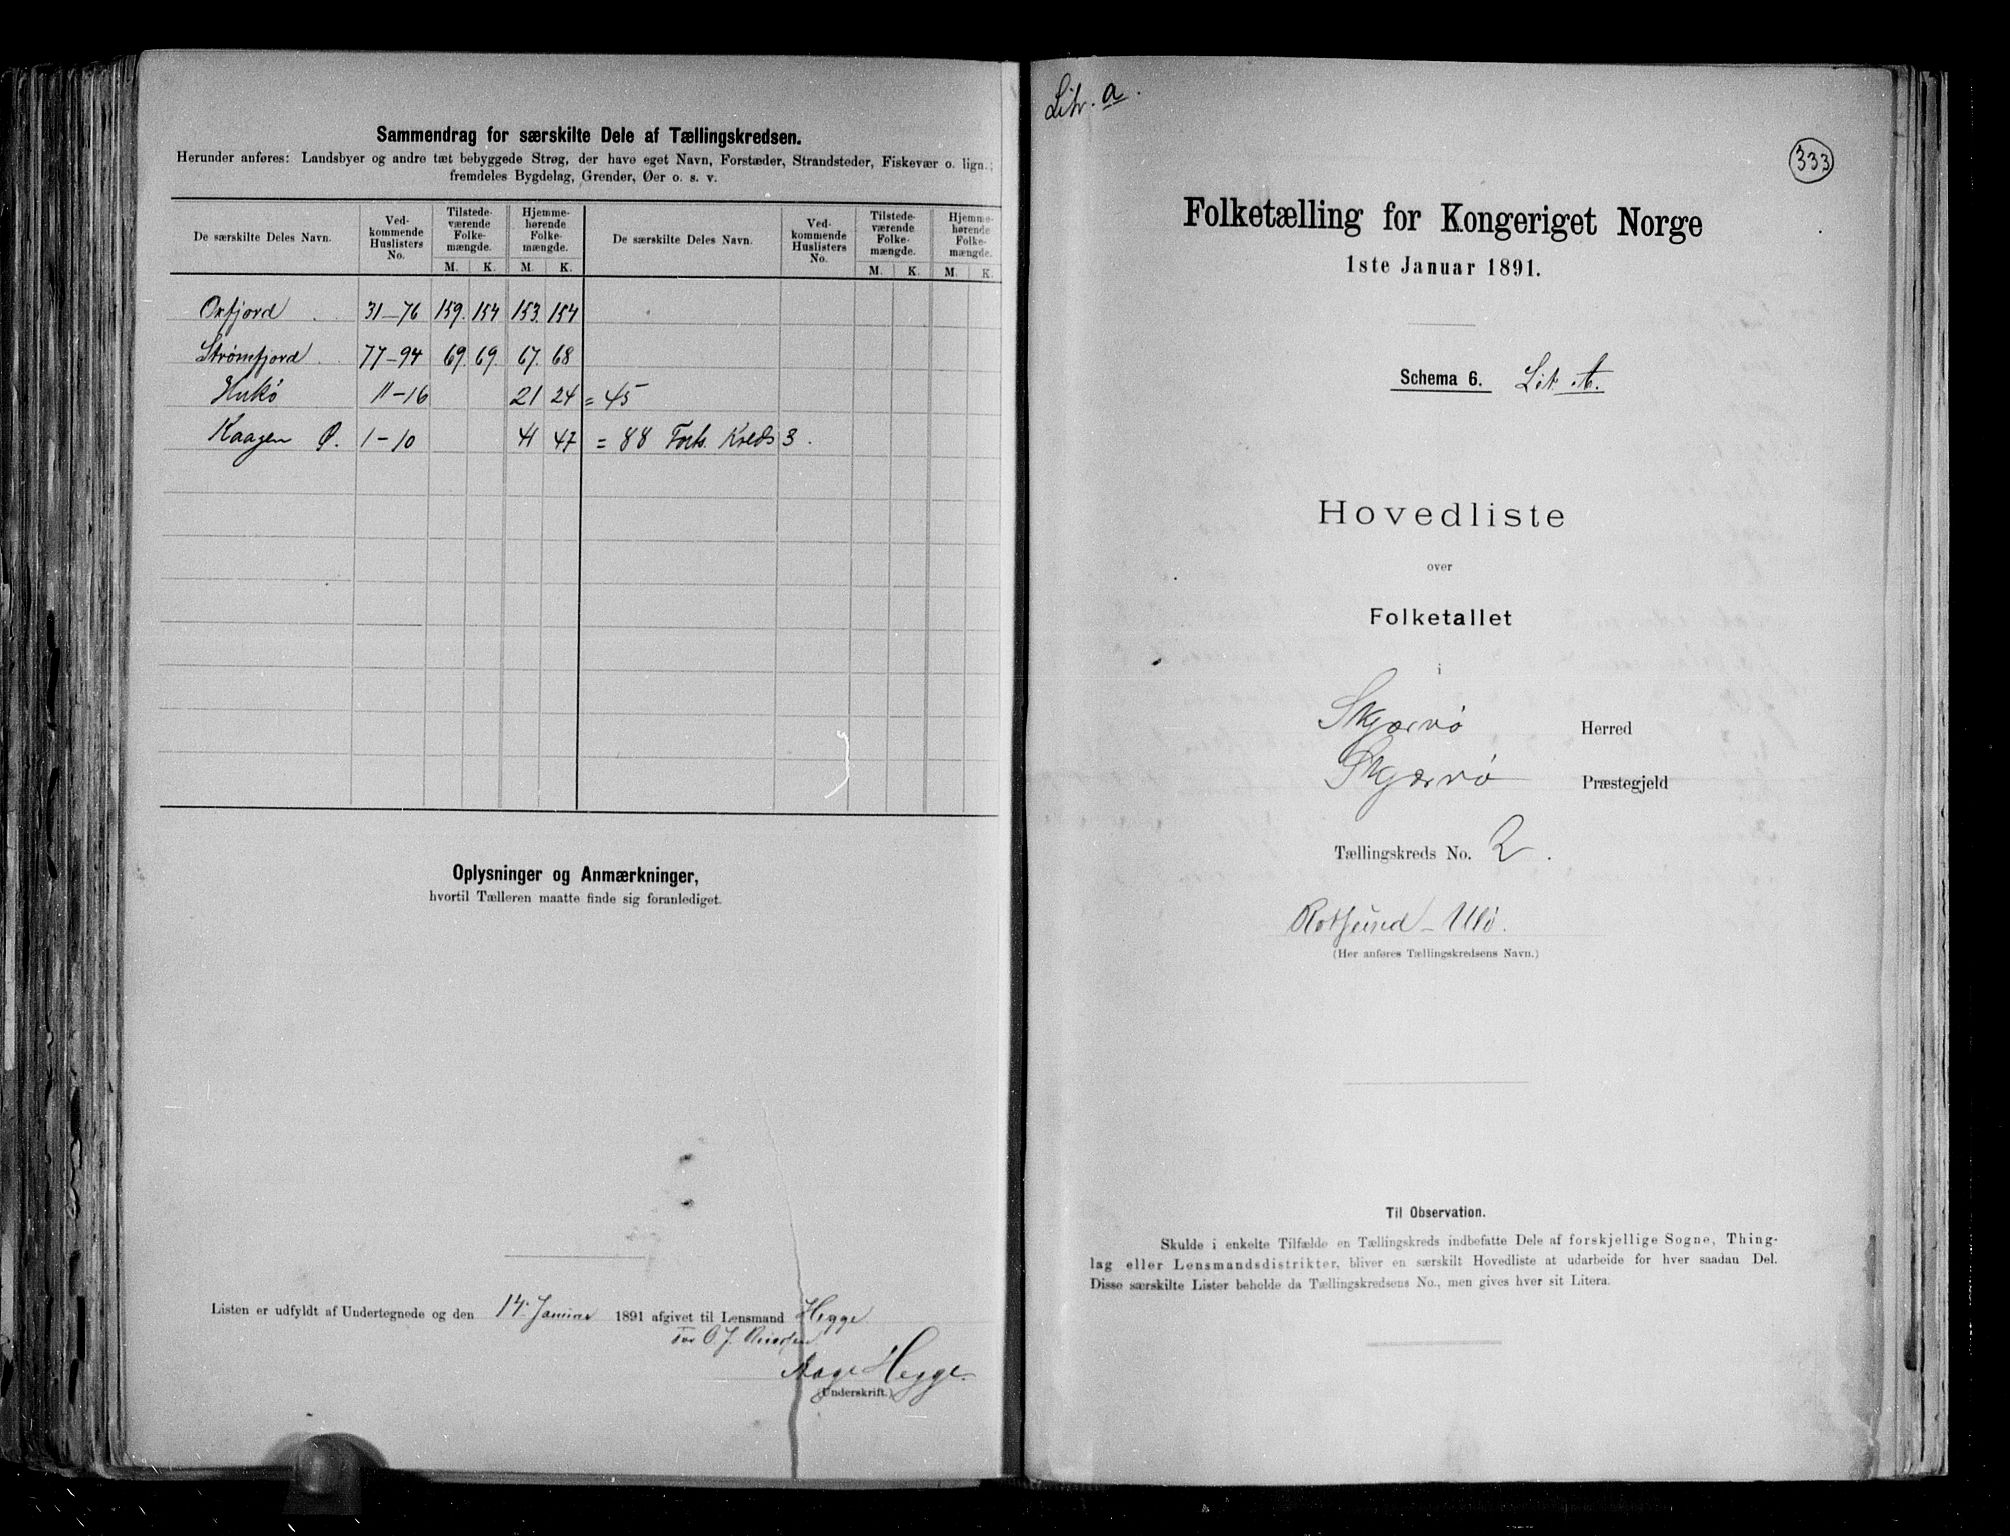 Sammendrag for særskilte Dele af Tællingskredsen.
Herunder anføres: Landsbyer og andre tæt bebyggede Strøg, der have eget Navn, Forstæder, Strandsteder, Fiskevær o. lign.;
fremdeles Bygdelag, Grender, Øer o. s. v.
De særskilte Deles Navn. Ved-kommende Huslisters No. Tilstede-værende Folke-mængde. Hjemme-hørende Folke-mængde. De særskilte Deles Navn. Ved-kommende Huslisters No. Tilstede-værende Folke-mængde. Hjemme-hørende Folke-mængde.
M. K. M. K. M. K. M. K.
Oxfjord 31-76 159. 154 153. 154
Strømfjord 77-94 69. 69. 67. 68
Hukø 11-16 21 24 = 45
Kaagen Ø. 1-10 41 47 = 88 Forts. Kreds 3.
Oplysninger og Anmærkninger,
hvortil Tælleren maatte finde sig foranlediget.
Listen er udfyldt af Undertegnede og den 14. Januar 1891 afgivet til Lensmand Hegge
for O. J.
Aage Hegge.
(Underskrift.)
Litr. a.
333
Folketælling for Kongeriget Norge
1ste Januar 1891.
Schema 6. Lit. A.
Hovedliste
over
Folketallet
i
Skjærvø Herred
Skjærvø Præstegjeld
Tællingskreds No. 2.
Rotsund - Ulø.
(Her anføres Tællingskredsens Navn.)
Til Observation.
Skulde i enkelte Tilfælde en Tællingskreds indbefatte Dele af forskjellige Sogne, Thing-
lag eller Lensmandsdistrikter, bliver en særskilt Hovedliste at udarbeide for hver saadan Del.
Disse særskilte Lister beholde da Tællingskredsens No., men gives hver sit Litera.